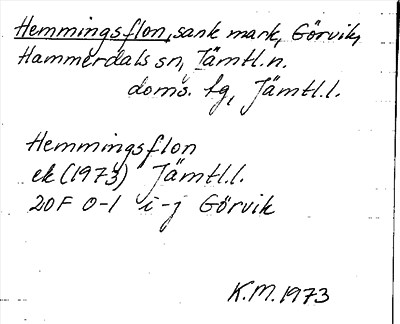 Hemmingsflon, sank mark, Görvik,
Hammerdals sn, Jämtl.n.
doms. lg, Jämtl.l.
Hemmingsflon
ek (1973) Jämtl.l.
20F 0-1 i-j Görvik
K.M. 1973